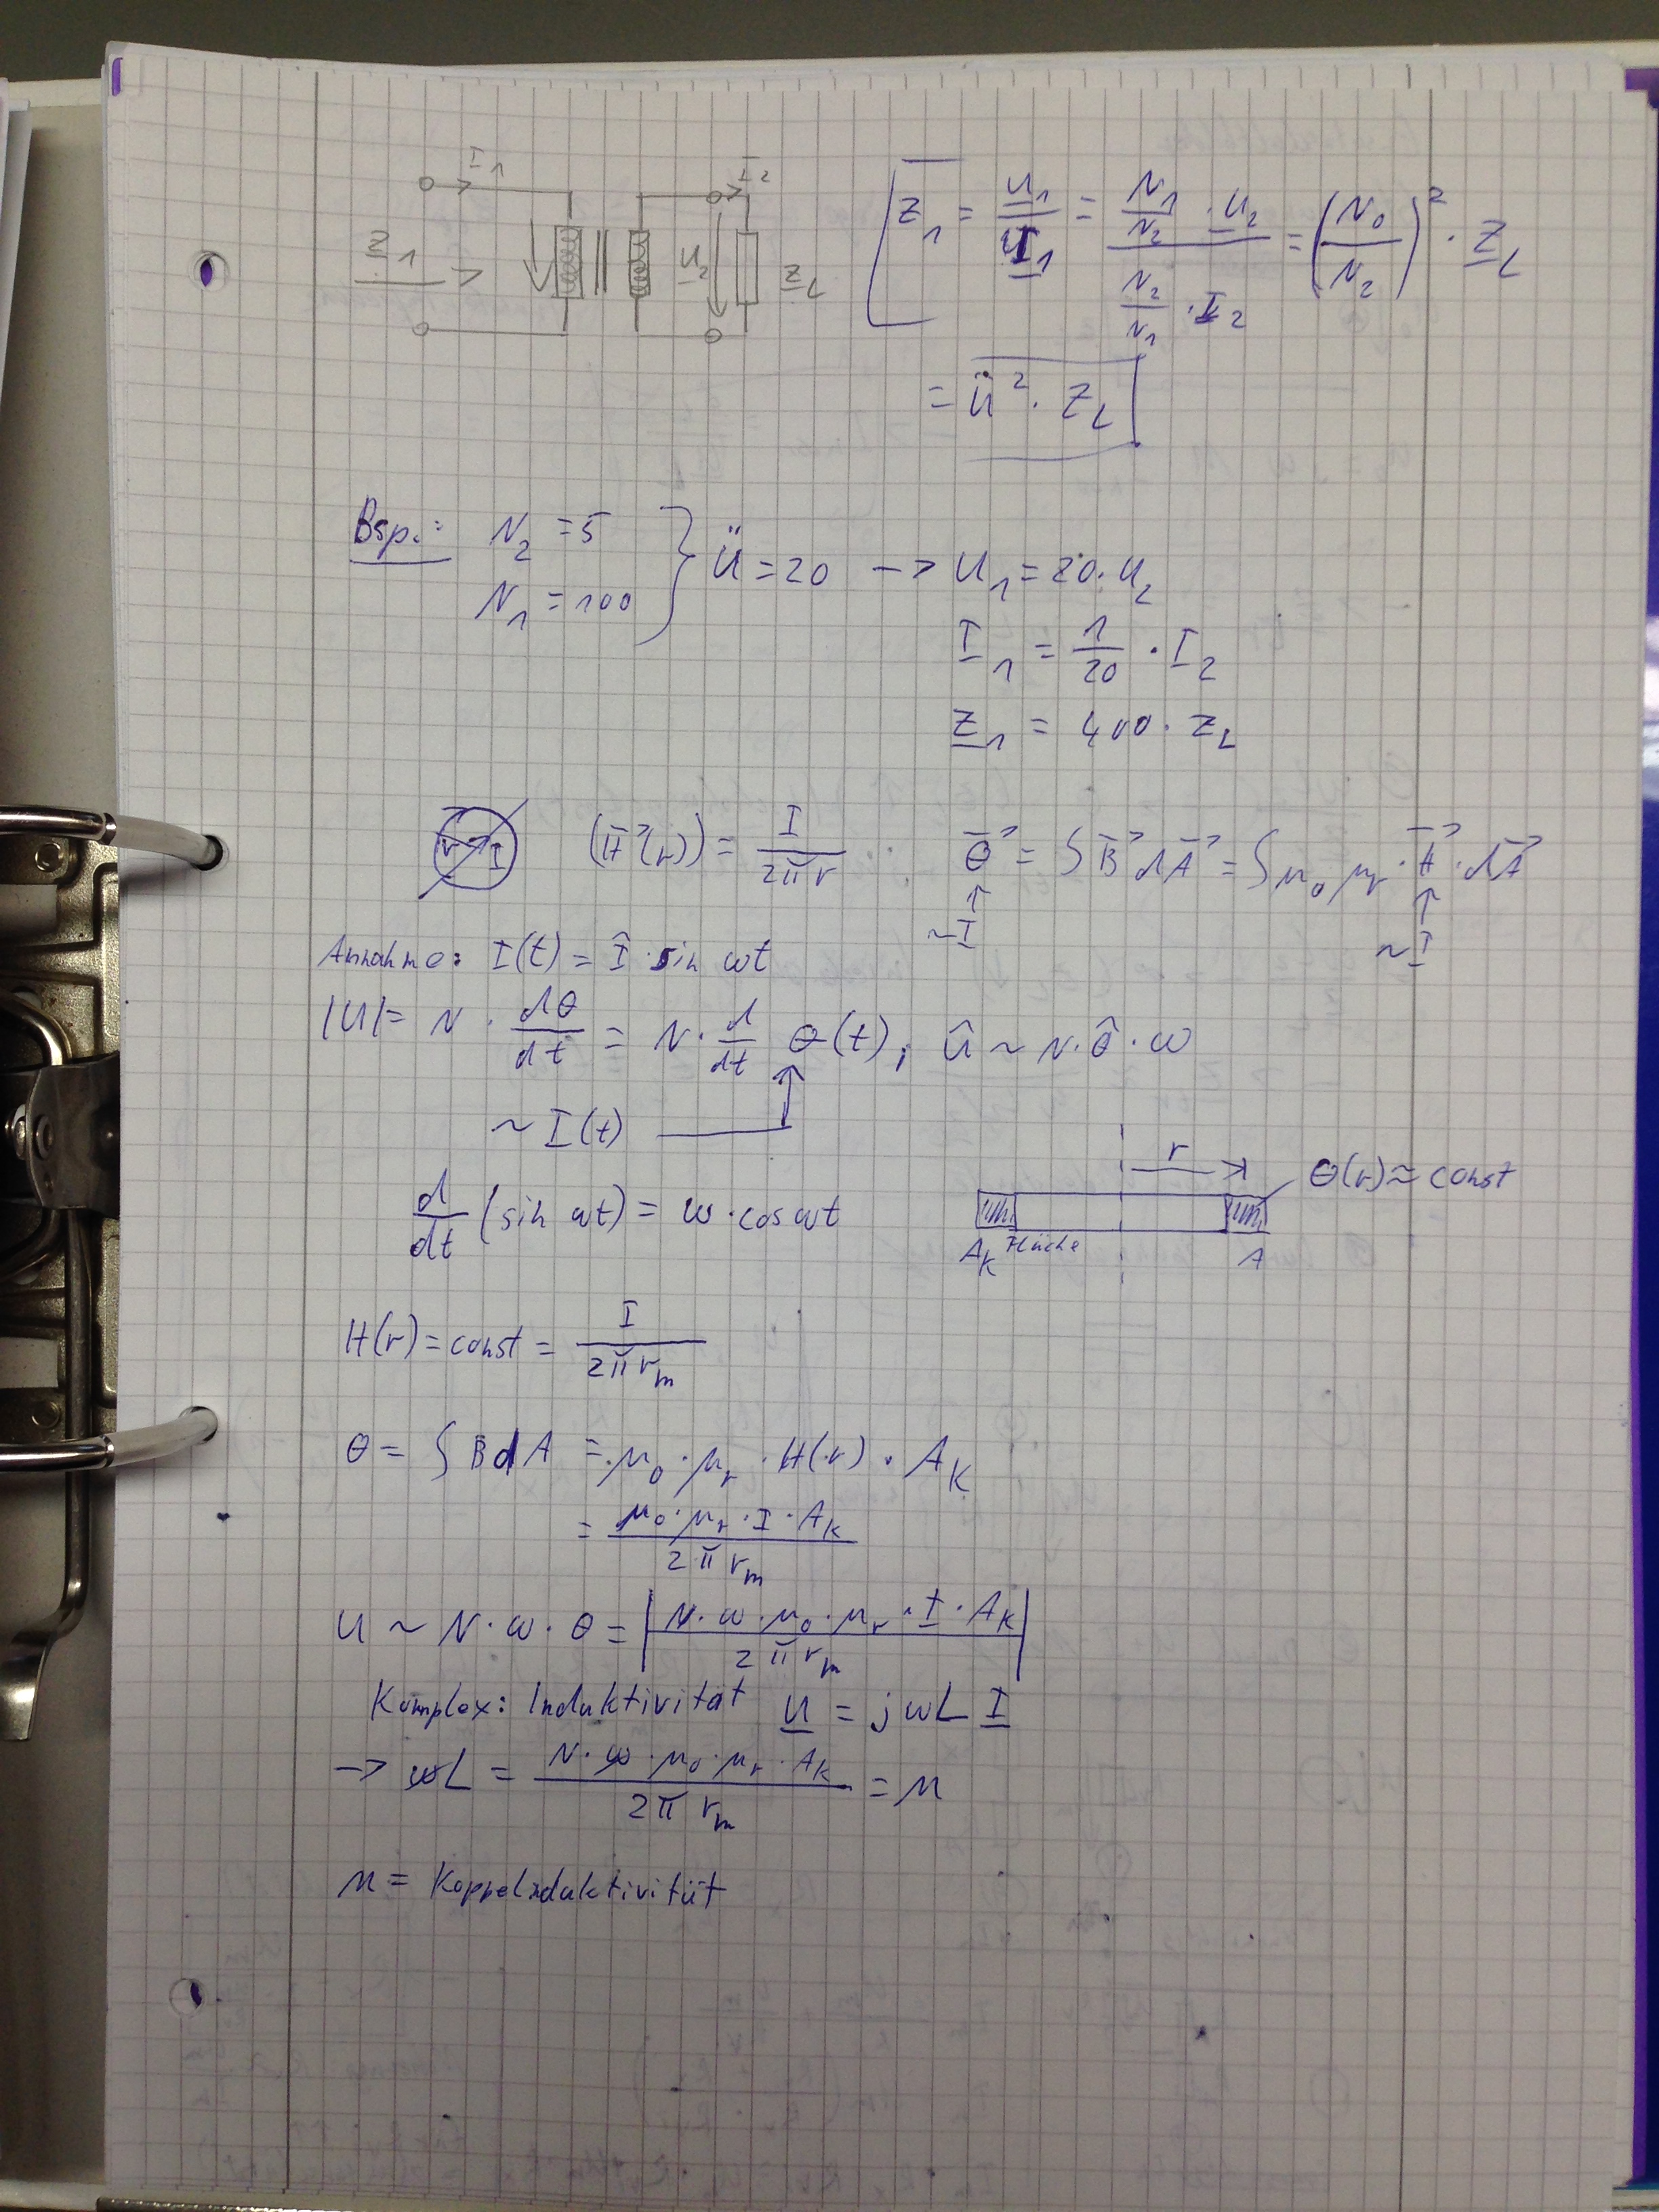 I₁ I₂
Z₁ U₂ Z_L
Z₁ = U₁/I₁ = (N₁/N₂ · U₂)/(N₂/N₁ · I₂) = (N₀/N₂)² · Z_L
= ü² · Z_L
Bsp.: N₂ = 5
N₁ = 100 } Ü = 20 → U₁ = 20 · U₂
I₁ = 1/20 · I₂
Z₁ = 400 · Z_L
r I (H⃗(r)) = I/(2πr) Θ⃗ = ∫ B⃗ dA⃗ = ∫ μ₀ μr · H⃗ · dA⃗
↑ ↑
~I ~I
Annahme: I(t) = Î · sin ωt
|U| = N · dΘ/dt = N · d/dt Θ(t); û ~ N · Θ̂ · ω
~ I(t)
r Θ(r) ≈ const
d/dt (sin ωt) = ω · cos ωt
A_K Fläche A
H(r) = const = I/(2π r_m)
Θ = ∫ B dA = μ₀ · μr · H(r) · A_K
= (μ₀ · μr · I · A_K)/(2π r_m)
U ~ N · ω · Θ = |(N · ω · μ₀ · μr · I · A_K)/(2π r_m)|
Komplex: Induktivität U = jωL I
→ ωL = (N · ω · μ₀ · μr · A_K)/(2π r_m) = M
M = Koppelinduktivität